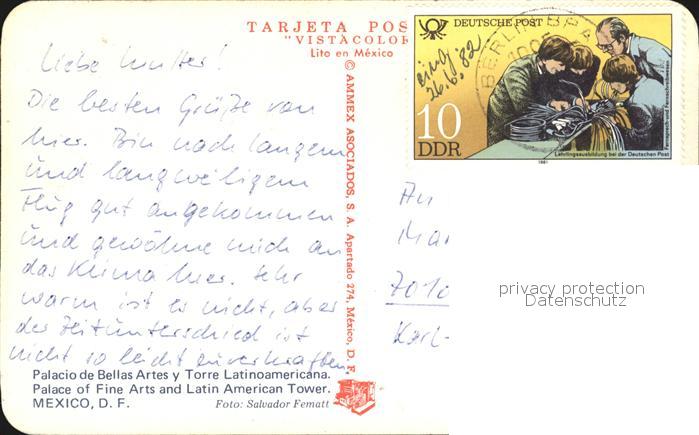 TARJETA POS
"VISTACOLOR
Lito en México
Liebe Mutter!
Die besten Grüße von
hier. Bin nach langem
und langweiligem
Flug gut angekommen
und gewöhne mich an
das Klima hier. Sehr
warm ist es nicht, aber
der Zeitunterschied ist
nicht so leicht zu verkraften.
Palacio de Bellas Artes y Torre Latinoamericana.
Palace of Fine Arts and Latin American Tower.
MEXICO, D. F.
Foto: Salvador Fematt
© AMMEX ASOCIADOS, S. A. Apartado 274, México, D. F.
DEUTSCHE POST
BERLIN
eing.
26.6.82
10
DDR
Lehrlingsausbildung bei der Deutschen Post
1981
An
Mar
7010
Karl-
privacy protection
Datenschutz